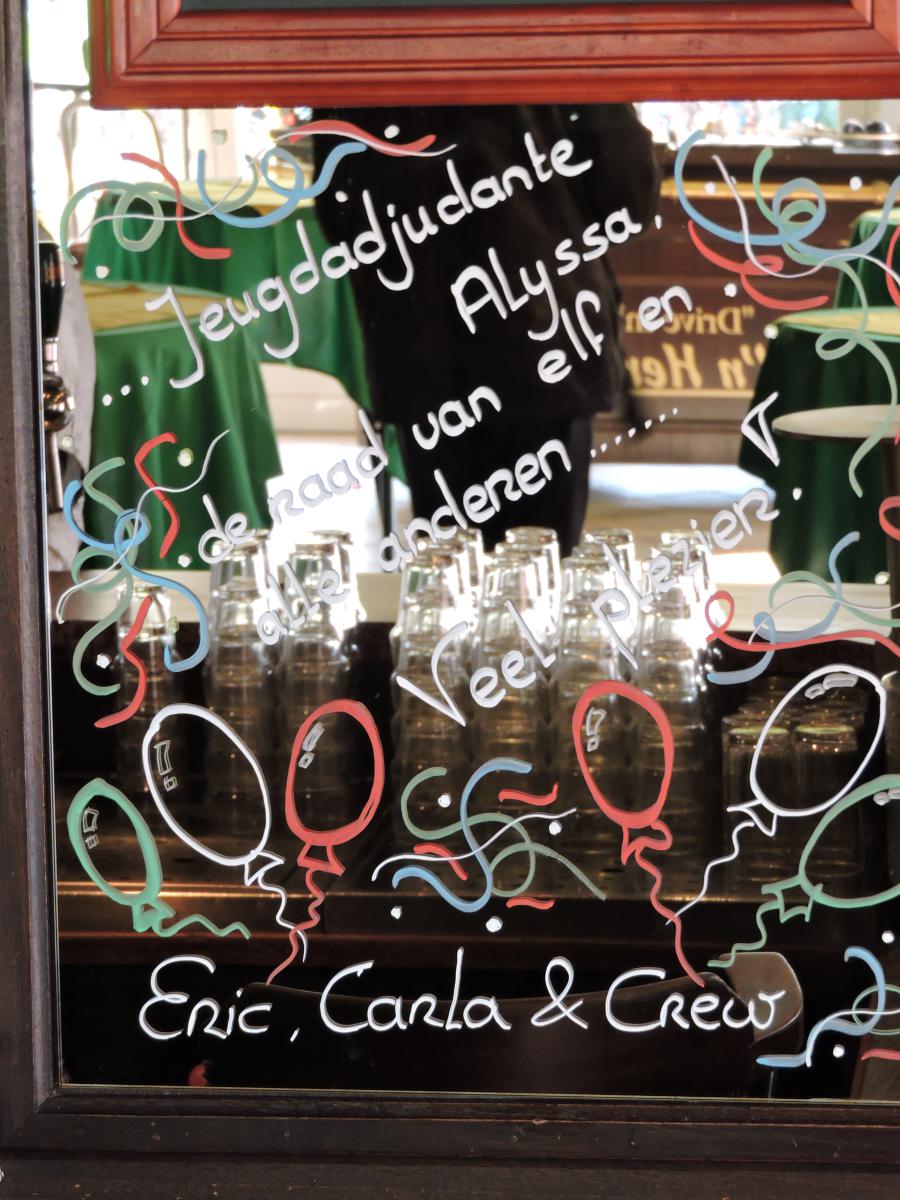 ... Jeugdadjudante
Alyssa,
de raad van elf en
alle anderen ......
Veel plezier.
Eric, Carla & Crew
"Drive
'n He